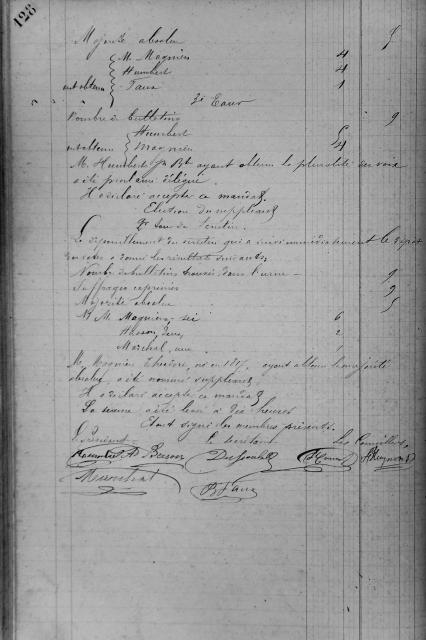 128
Majorité absolue 5
M. Magnien 4
Humbert 4
ont obtenu Faus 1
3e Tour
Nombre de bulletins 9
Humbert 5
ont obtenu Magnien 4
M. Humbert Bt ayant obtenu la pluralité des voix
a été proclamé délégué.
Il a déclaré accepter ce mandat.
Election du suppléant
1er Tour de scrutin.
Le dépouillement du scrutin qui a suivi immédiatement le dépôt
des votes a donné les résultats suivants,
Nombre de bulletins trouvés dans l'urne 9
Suffrages exprimés 9
Majorité absolue 5
M. Magnien, six 6
deux 2
Maréchal, une 1
M. Magnien Théodore, né en ayant obtenu la majorité
absolue, a été nommé suppléant,
Il a déclaré accepter ce mandat
La séance a été levée à dix heures
Et ont signé les membres présents.
Le Président Le secrétaire Les Conseillers